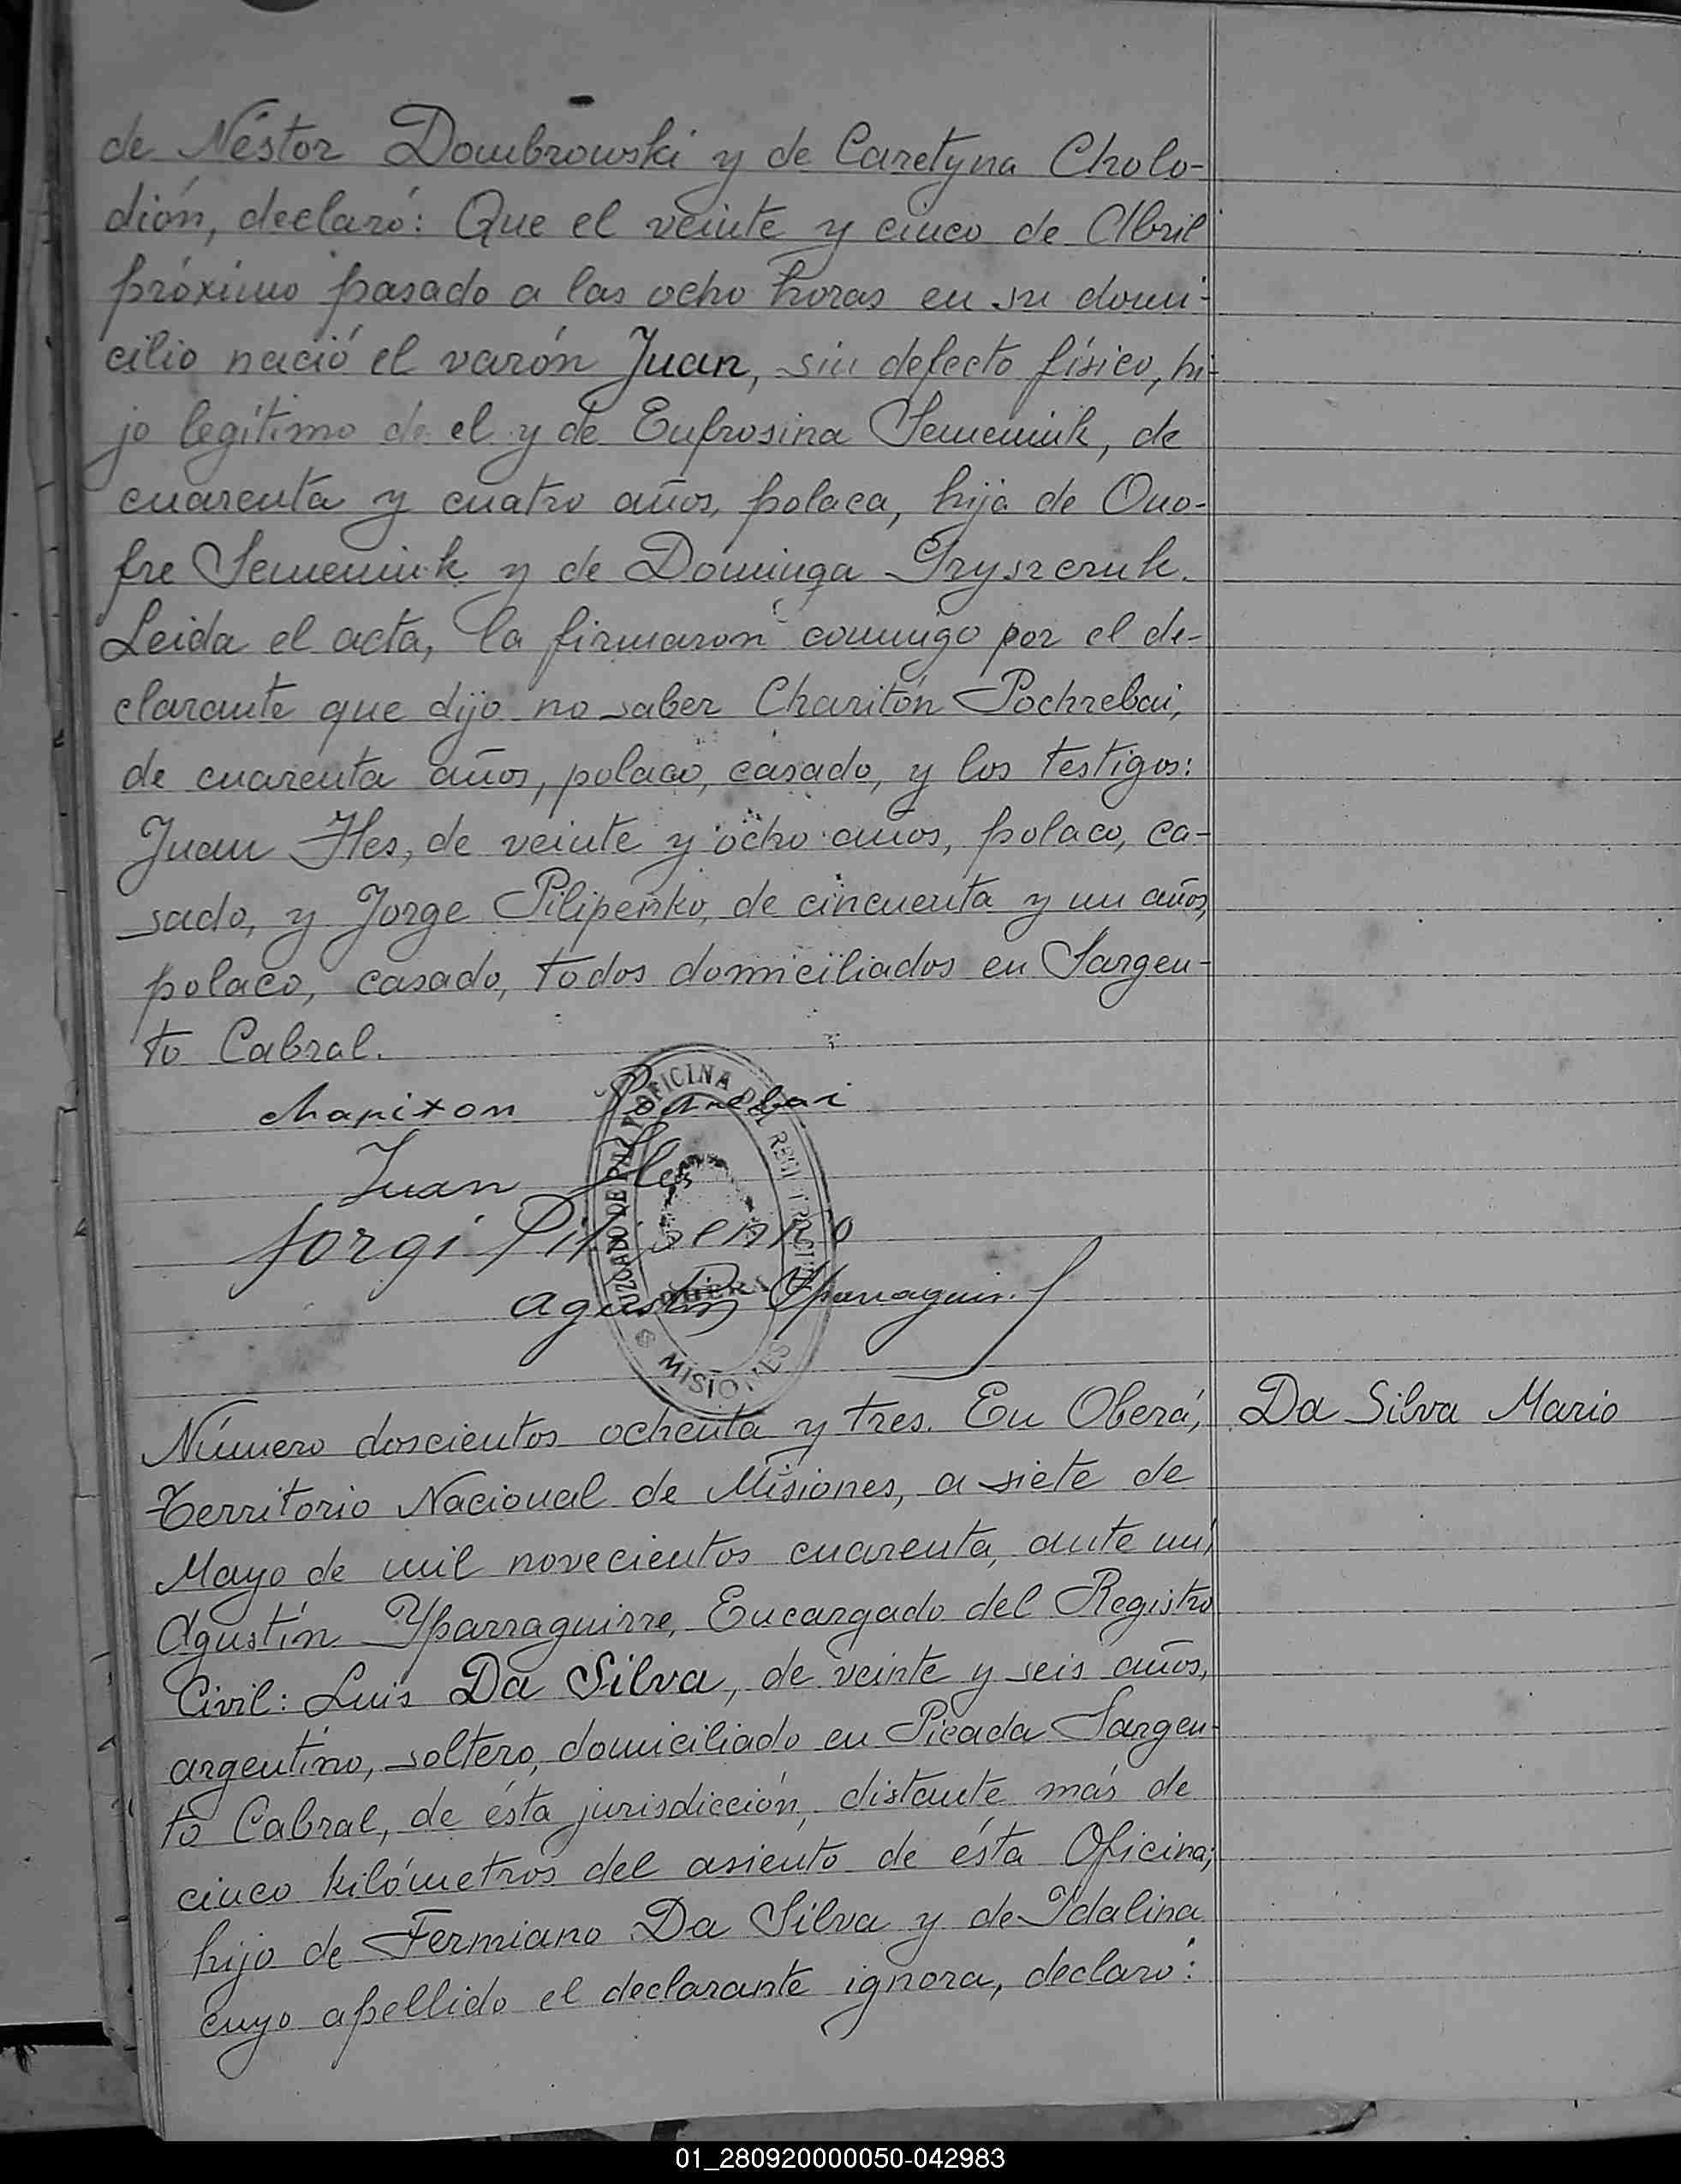 de Néstor Dombrowski y de Caretyna Cholo-
dión, declaró: Que el veinte y cinco de Abril
próximo pasado a las ocho horas en su domi-
cilio nació el varón Juan, sin defecto físico, hi-
jo legítimo de el y de Eufrosina Semeniuk, de
cuarenta y cuatro años, polaca, hija de Ono-
fre Semeniuk y de Dominga Gryszczuk.
Leida el acta, la firmaron conmigo por el de-
clarante que dijo no saber Charitón Pochrebai,
de cuarenta años, polaco, casado, y los testigos:
Juan Iles, de veinte y ocho años, polaco, ca-
sado, y Jorge Pilipenko, de cincuenta y un años,
polaco, casado, todos domiciliados en Sargen-
to Cabral.
Juan Iles
Jorgi Pilipenko
Agustín Yparraguirre
JUZGADO DE PAZ Y OFICINA DEL REGISTRO CIVIL
OBERA
MISIONES
Número doscientos ochenta y tres. En Oberá,
Da Silva Mario
Territorio Nacional de Misiones, a siete de
Mayo de mil novecientos cuarenta, ante mí,
Agustín Yparraguirre, Encargado del Registro
Civil: Luis Da Silva, de veinte y seis años,
argentino, soltero, domiciliado en Picada Sargen-
to Cabral, de ésta jurisdicción, distante más de
cinco kilómetros del asiento de ésta Oficina;
hijo de Fermiano Da Silva y de Idalina
cuyo apellido el declarante ignora, declaró:
01_280920000050-042983